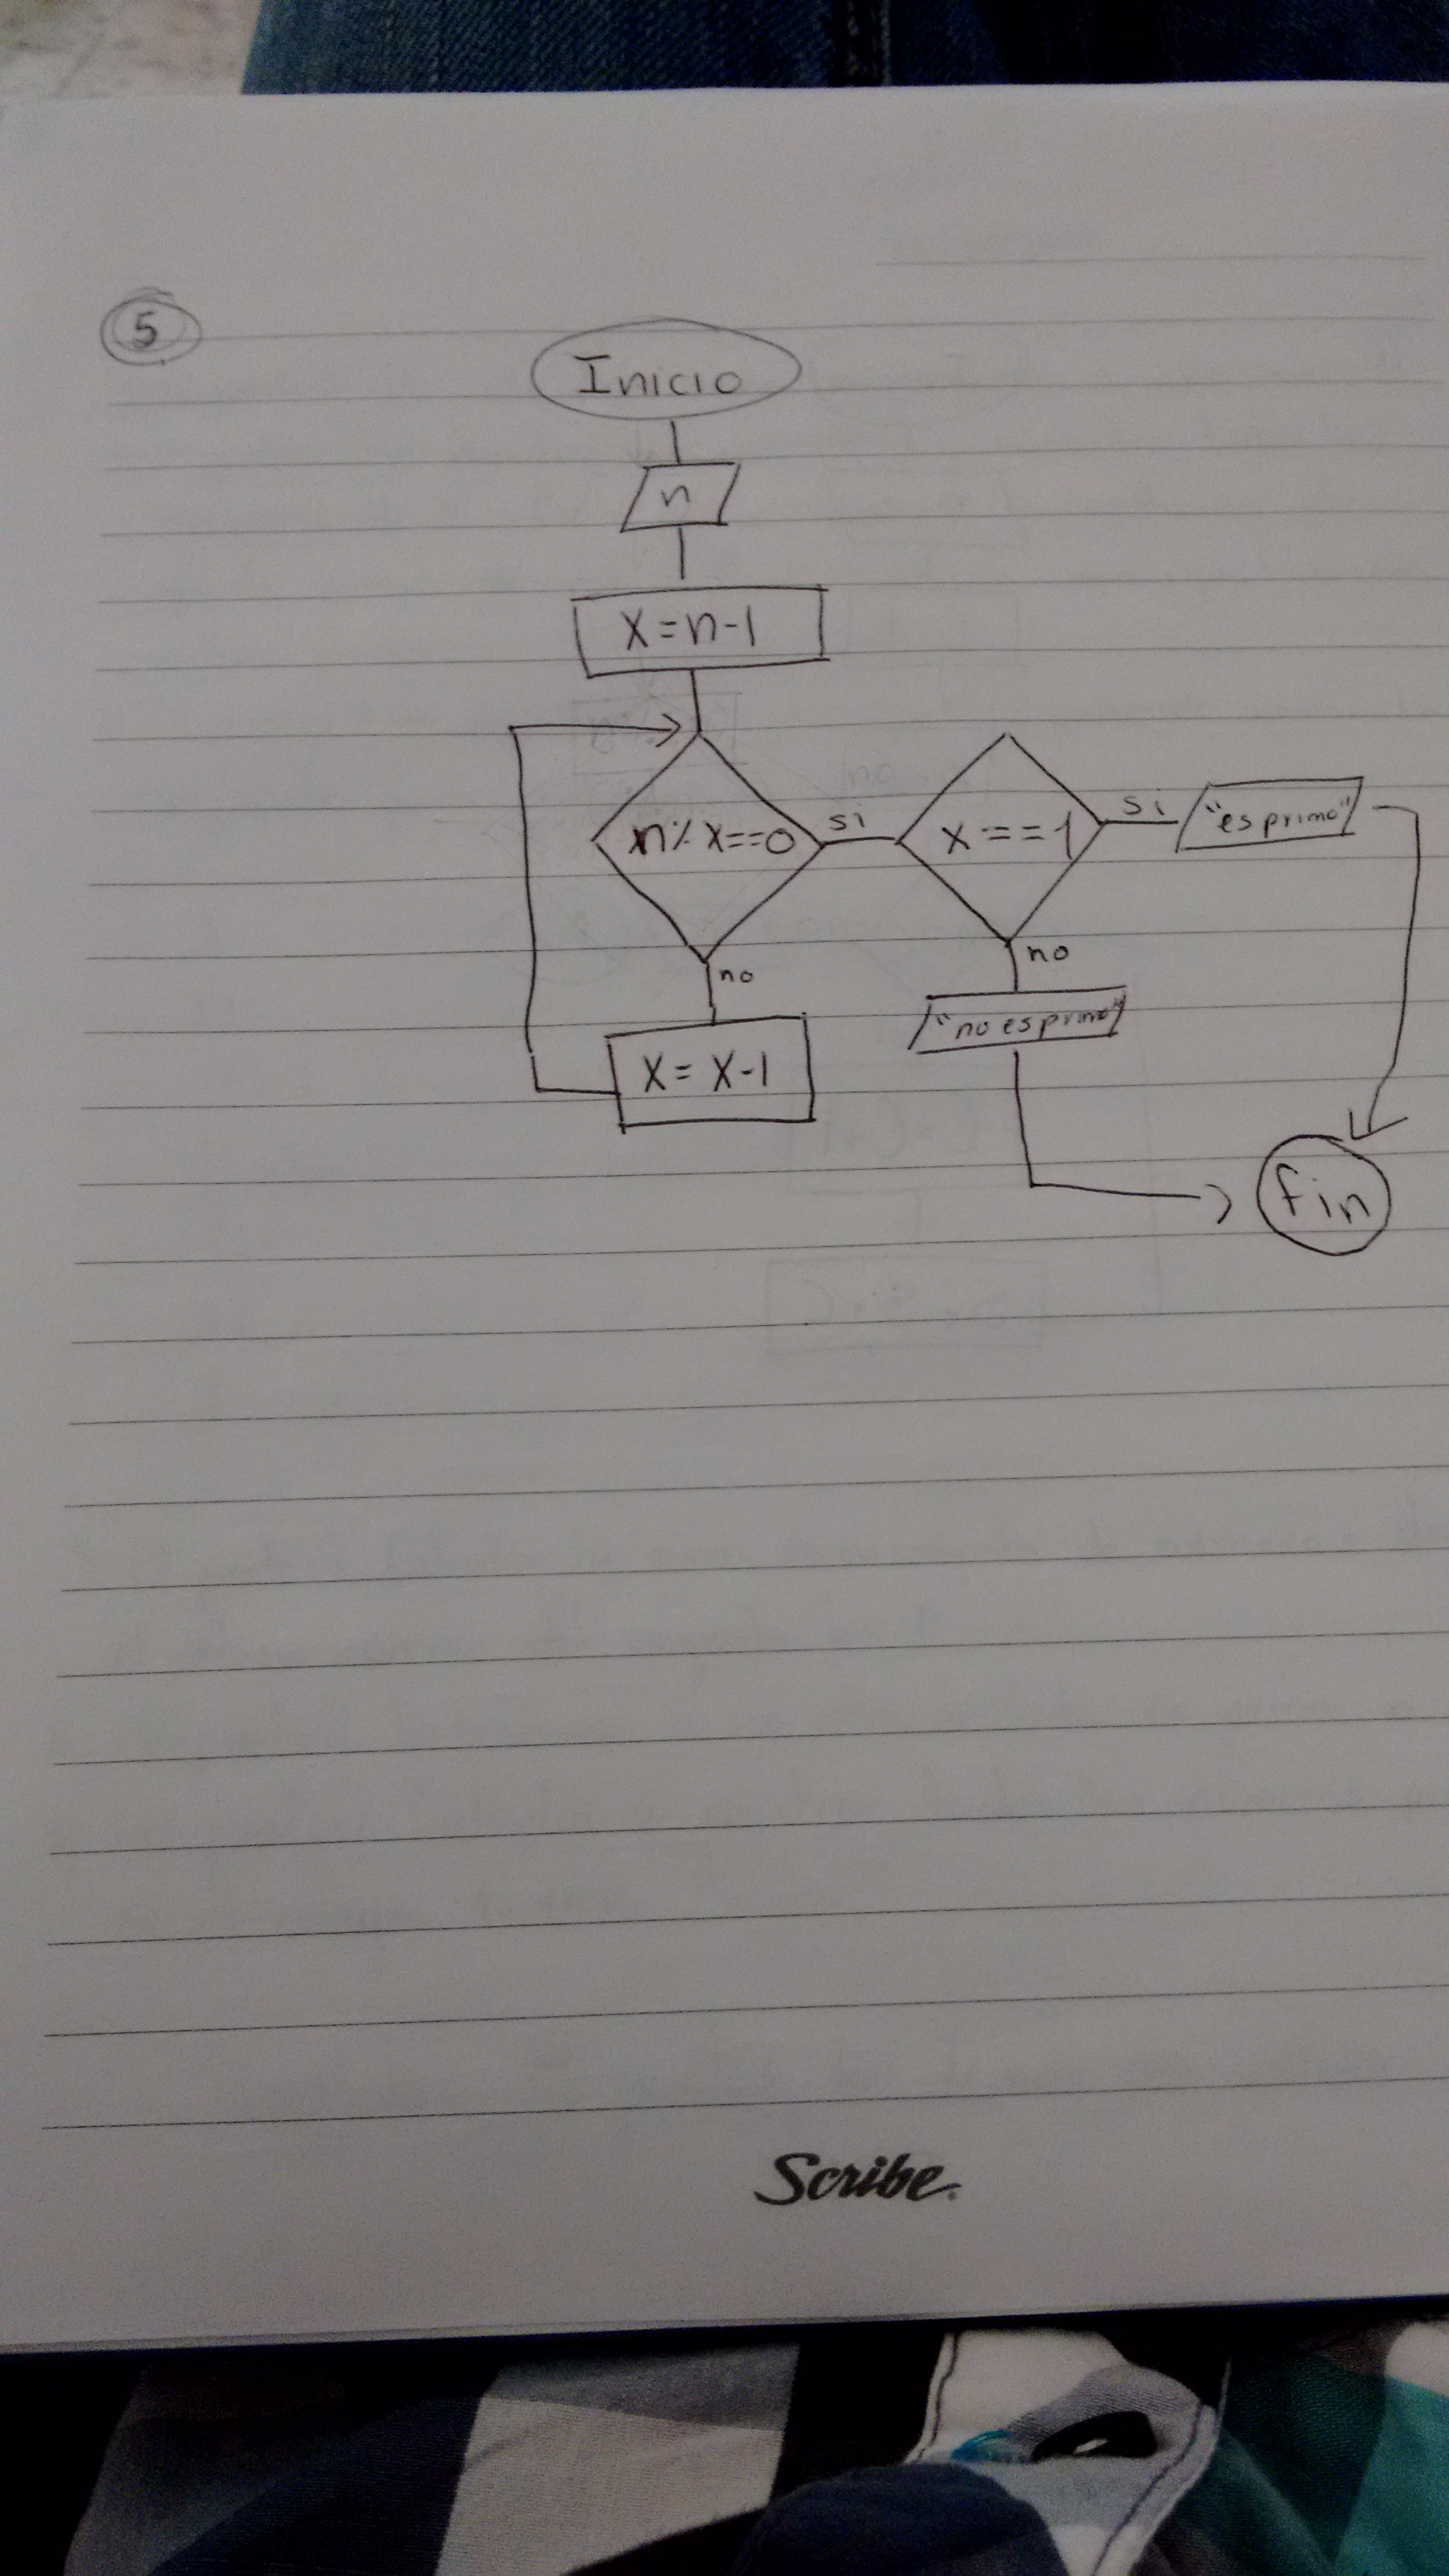 5
Inicio
n
x=n-1
n%x==0
si
x==1
si
"es primo"
no
no
"no es primo"
x= x-1
fin
Scribe